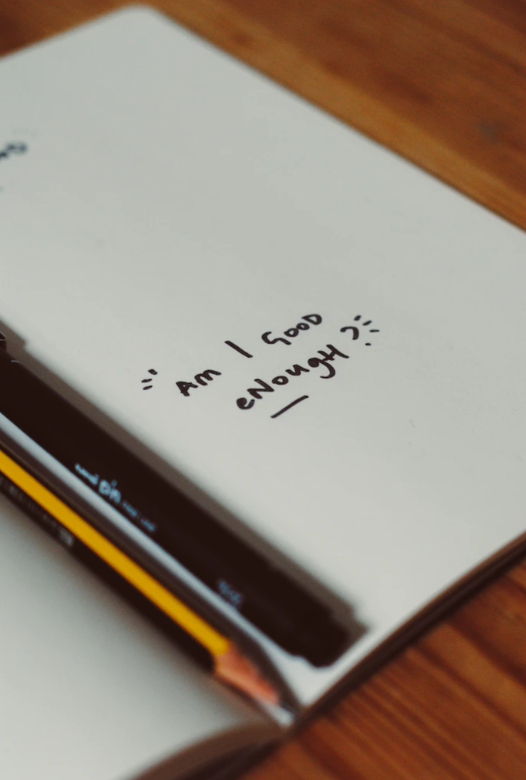 "Am I GOOD
eNougH?"